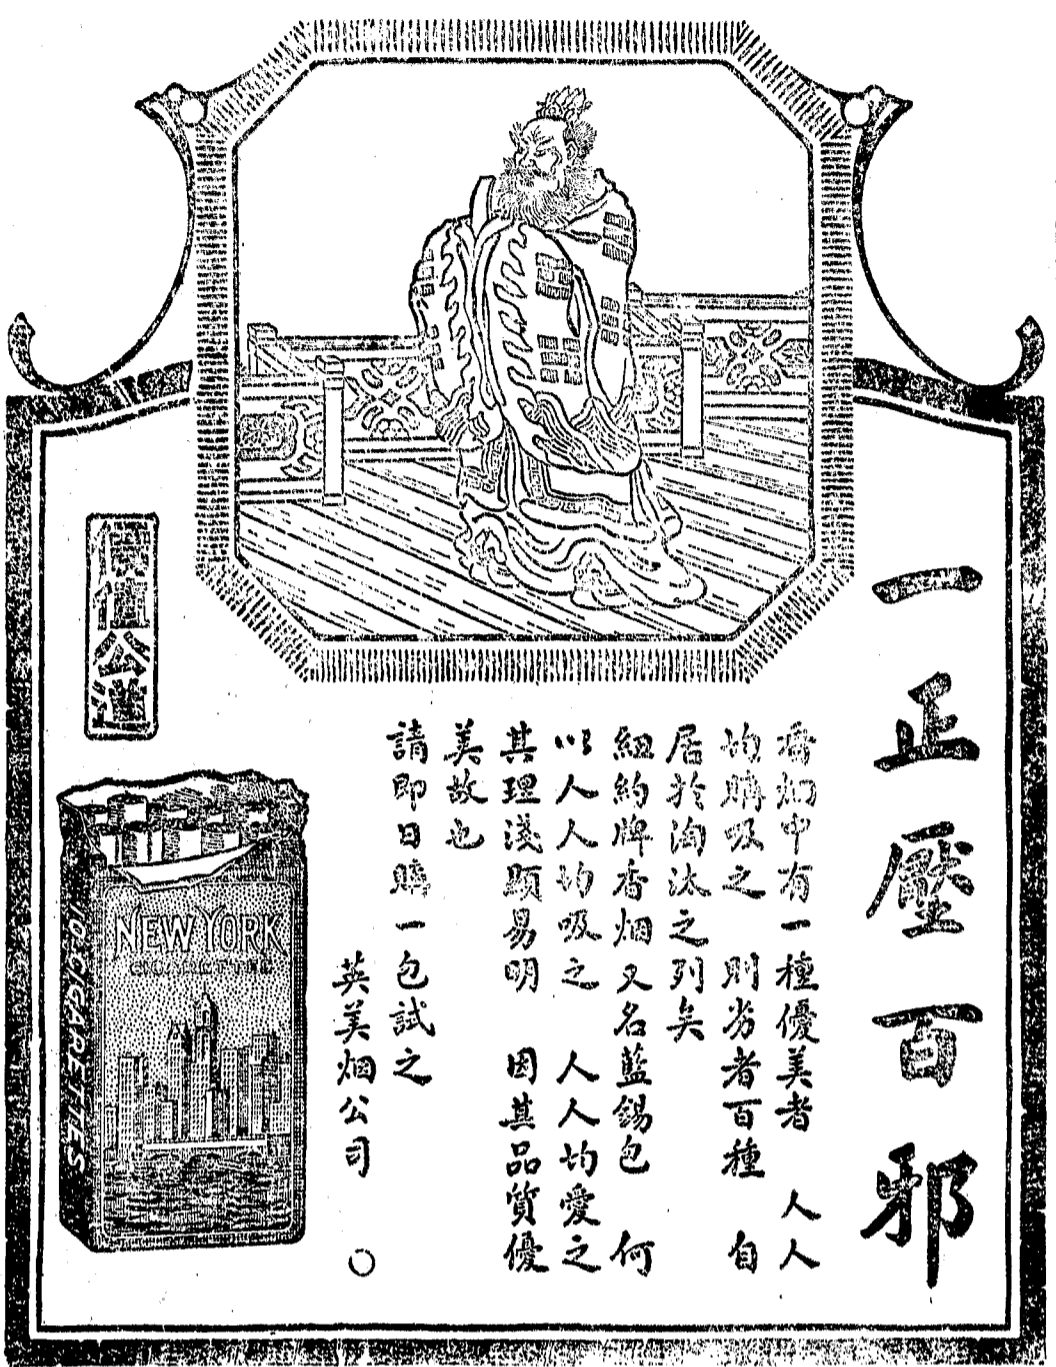 一正壓百邪
香烟中有一種優美者 人人
均購吸之 則劣者百種 自
居於淘汰之列矣
紐約牌香烟又名藍錫包 何
以人人均吸之 人人均愛之
其理淺顯易明 因其品質優
美故也
請即日購一包試之
英美烟公司 〇
價值公道
NEW YORK
CIGARETTES
10 CIGARETTES